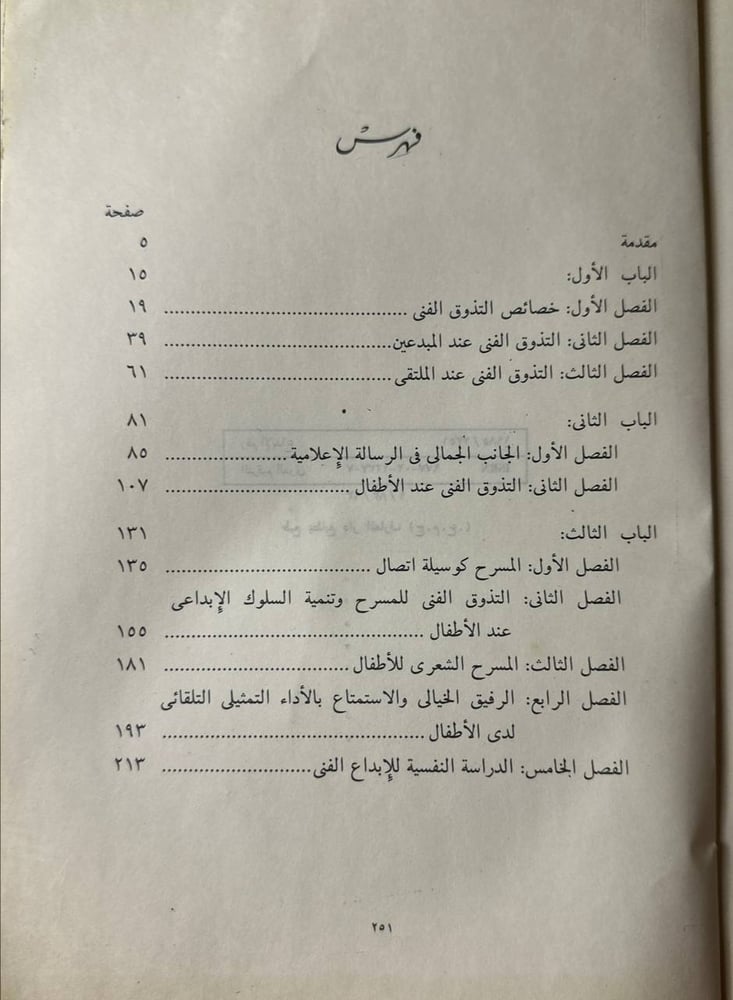 فهرس
صفحة
مقدمة ٥
الباب الأول: ١٥
الفصل الأول: خصائص التذوق الفنى ............................................ ١٩
الفصل الثانى: التذوق الفنى عند المبدعين......................................... ٣٩
الفصل الثالث: التذوق الفنى عند الملتقى......................................... ٦١
الباب الثانى: ٨١
الفصل الأول: الجانب الجمالى فى الرسالة الإعلامية...................... ٨٥
الفصل الثانى: التذوق الفنى عند الأطفال................................. ١٠٧
الباب الثالث: ١٣١
الفصل الأول: المسرح كوسيلة اتصال ..................................... ١٣٥
الفصل الثانى: التذوق الفنى للمسرح وتنمية السلوك الإبداعى
عند الأطفال ............................................... ١٥٥
الفصل الثالث: المسرح الشعرى للأطفال ................................. ١٨١
الفصل الرابع: الرفيق الخيالى والاستمتاع بالأداء التمثيلى التلقائى
لدى الأطفال ............................................... ١٩٣
الفصل الخامس: الدراسة النفسية للإبداع الفنى........................... ٢١٣
٢٥١